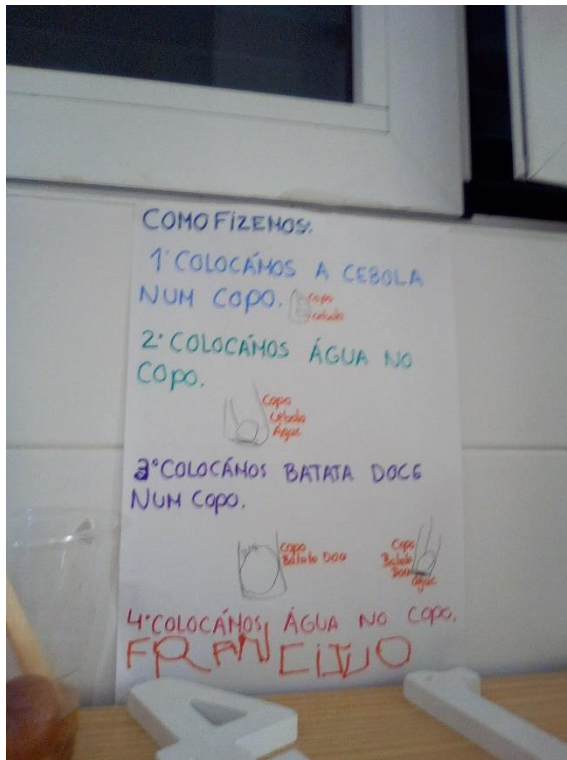 COMO FIZEMOS:
1º COLOCÁMOS A CEBOLA
NUM COPO.
Copo
cebola
2º COLOCÁMOS ÁGUA NO
COPO.
Copo
Cebola
Água
3º COLOCÁMOS BATATA DOCE
NUM COPO.
Copo
Batata Doce
Copo
Batata
Doce
Água
4º COLOCÁMOS ÁGUA NO COPO.